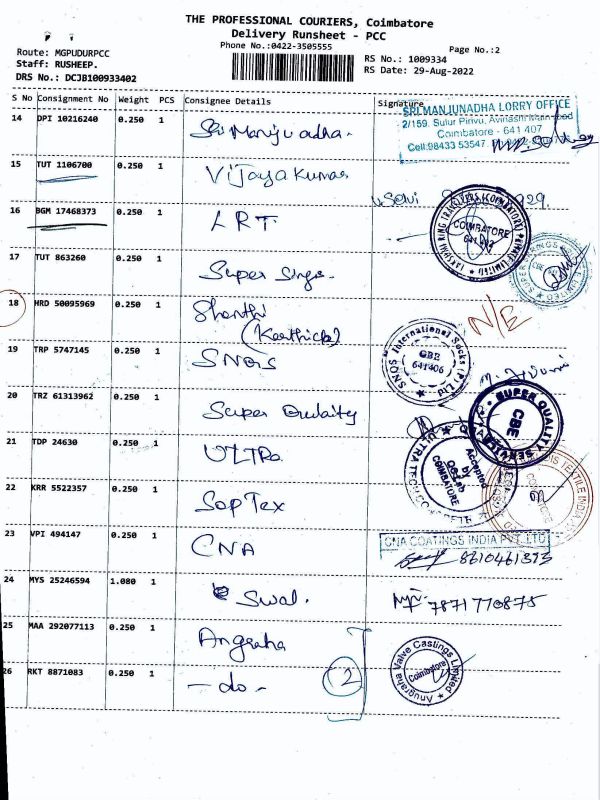 THE PROFESSIONAL COURIERS, Coimbatore
Delivery Runsheet - PCC
Phone No.:0422-3505555
Page No.:2
Route: MGPUDURPCC
Staff: RUSHEEP.
DRS No.: DCJB100933402
RS No.: 1009334
RS Date: 29-Aug-2022
S No Consignment No Weight PCS Consignee Details Signature
14 DPI 10216240 0.250 1 Sri Manjuadha.
SRI MANJUNADHA LORRY OFFICE
2/159, Sulur Pirivu, Avinashi Main Road
Coimbatore - 641 407
Cell:98433 53547.
15 TUT 1106700 0.250 1 Vijayakumar
16 BGM 17468373 0.250 1 LRT.
LAKSHMI RING TRAVELLERS (COIMBATORE) PRIVATE LIMITED
COIMBATORE
17 TUT 863260 0.250 1 Super Sings.
18 HRD 50095969 0.250 1 Shanthi
(Karthick)
N/E
19 TRP 5747145 0.250 1 SNQS
SNQS International Socks (P) Ltd
CBE
641406
20 TRZ 61313962 0.250 1 Super Quality
SUPER QUALITY SERVICES
CBE
21 TDP 24630 0.250 1 ULTRa
Accepted
by
COIMBATORE
22 KRR 5522357 0.250 1 SopTex
TEXTILE INDIA
23 VPI 494147 0.250 1 CNA
CNA COATINGS INDIA PVT. LTD
8610461393
24 MYS 25246594 1.080 1 Swal.
7871770875
25 MAA 292077113 0.250 1 Angraha
26 RKT 8871083 0.250 1 -do-
2
Anugraha Valve Castings Limited
Coimbatore